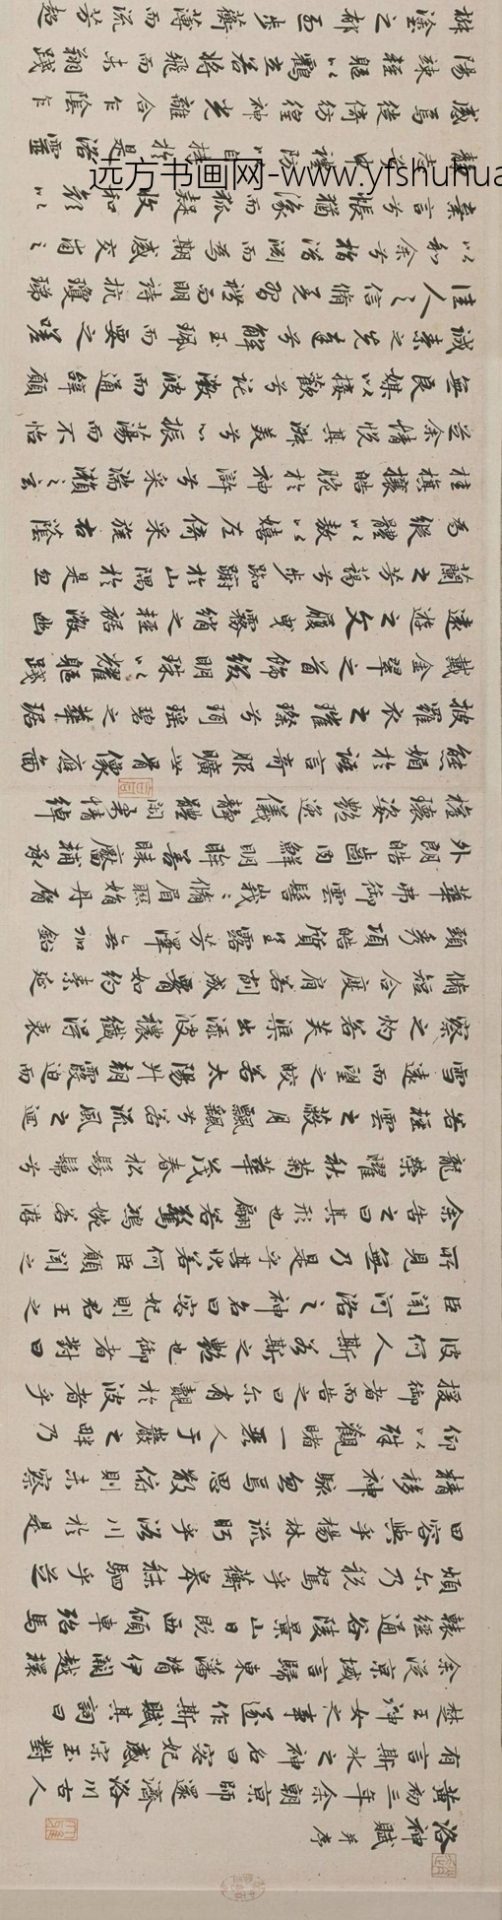 洛神賦 并序
黄初三年余朝京師還濟洛川古人
有言斯水之神名曰宓妃感宋玉對
楚王神女之事遂作斯賦其詞曰
余從京域言歸東藩背伊闕越轘
轅經通谷陵景山日既西傾車殆馬
煩尔乃税駕乎蘅皋秣駟乎芝
田容與乎楊林流眄乎洛川於是
精移神駭忽焉思散俯則未察
仰以殊觀睹一麗人于巖之畔乃
援御者而告之曰尔有覿於彼者乎
彼何人斯若斯之艷也御者對曰
臣聞河洛之神名曰宓妃則君王之
所見無乃是乎其狀若何臣願聞之
余告之曰其形也翩若驚鴻婉若游
龍榮曜秋菊華茂春松髣髴兮
若輕雲之蔽月飄飄兮若流風之迴
雪遠而望之皎若太陽升朝霞迫而
察之灼若芙蕖出淥波穠纖得衷
脩短合度肩若削成腰如約素延
頸秀項皓質呈露芳澤無加鉛
華弗御雲髻峩峩脩眉聯娟丹唇
外朗皓齒内鮮明眸善睞靨輔承
權瓌姿艷逸儀靜體閑柔情綽
態媚於語言奇服曠世骨像應圖
披羅衣之璀璨兮珥瑤碧之華琚
戴金翠之首飾綴明珠以耀軀踐
遠遊之文履曳霧綃之輕裾微幽
蘭之芳藹兮步踟躕於山隅於是忽
焉縱體以遨以嬉左倚采旄右蔭
桂旗攘皓腕於神滸兮采湍瀨之玄
芝余情悅其淑美兮心振蕩而不怡
無良媒以接歡兮託微波而通辭願
誠素之先達兮解玉珮而要之嗟
佳人之信脩羌習禮而明詩抗瓊珶
以和余兮指潛淵而為期感交甫之
棄言兮悵猶豫而狐疑收和顏以
靜志兮申禮防以自持於是洛靈
感焉徙倚彷徨神光離合乍陰乍
陽竦輕軀以鶴立若將飛而未翔踐
椒塗之郁烈步蘅薄而流芳超
远方书画网-www.yfshuhua